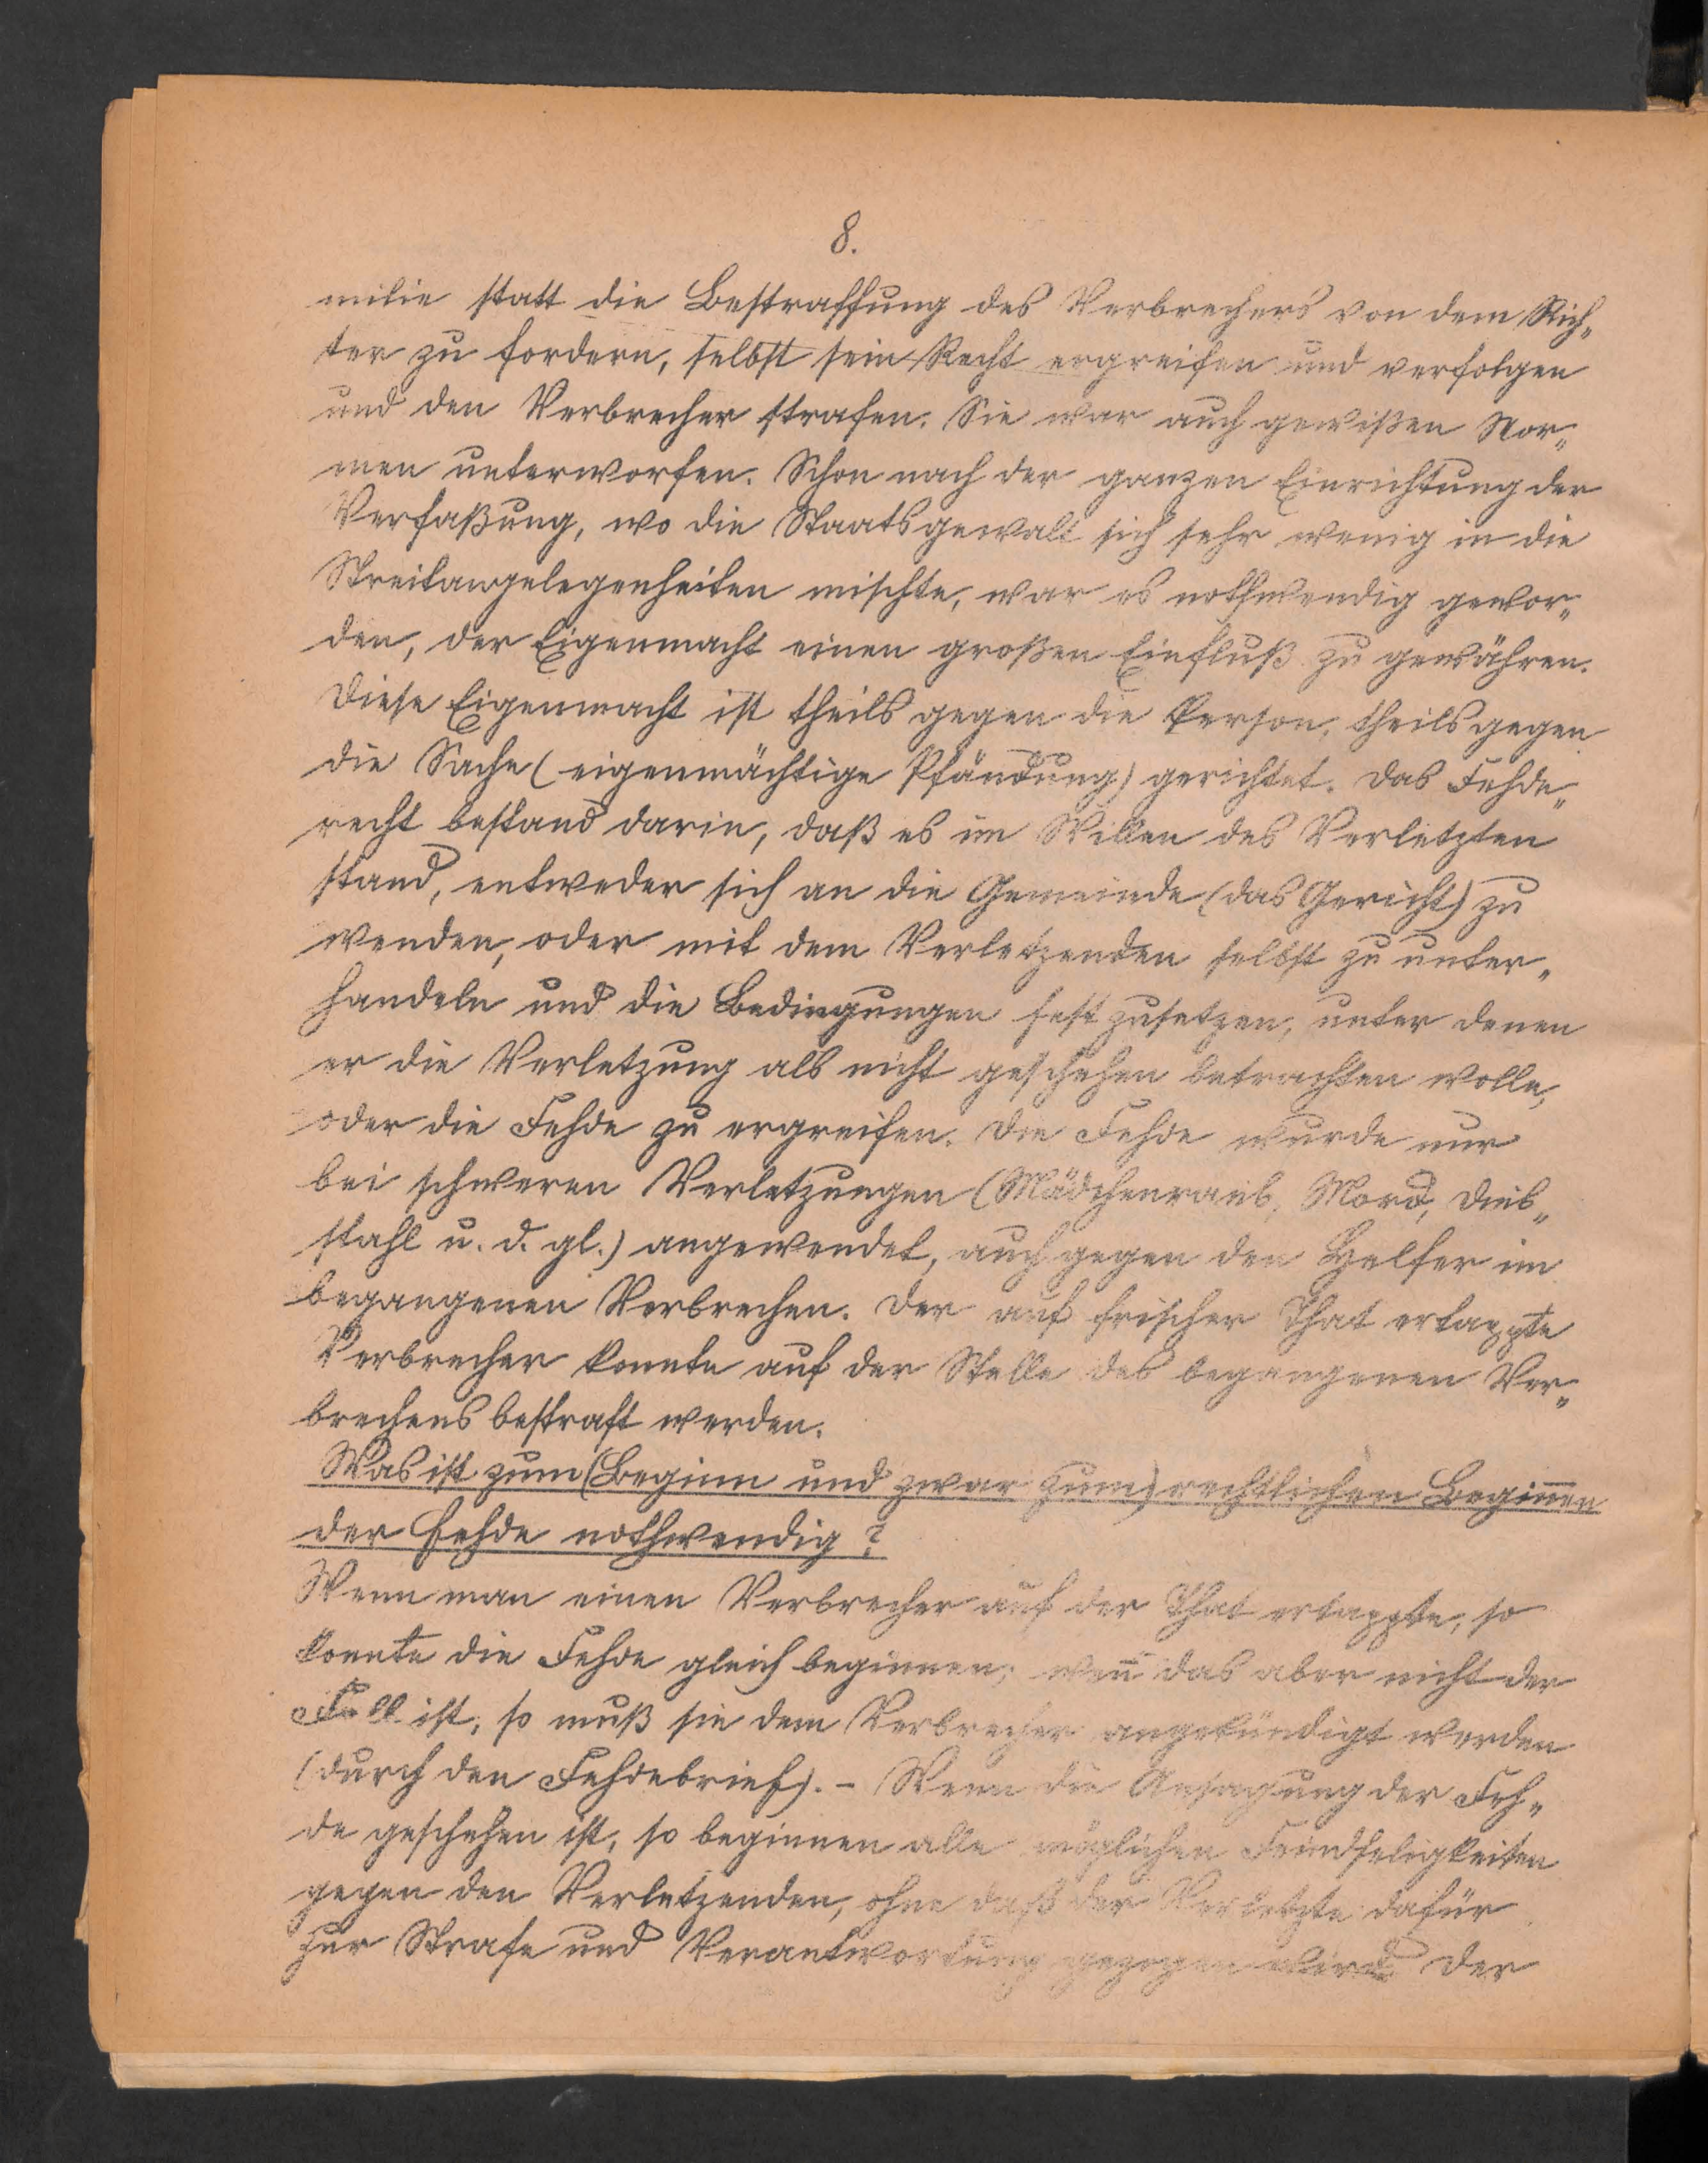 8.
milie statt die Bestraffung des Verbrechers von dem Rich-
ter zu fordern, selbst sein Recht ergreifen und verfolgen
und den Verbrecher strafen. Sie war auch gewißen Nor-
men unterworfen. Schon nach der ganzen Einrichtung der
Verfaßung, wo die Staatsgewalt sich sehr wenig in die
Streitangelegenheiten mischte, war es nothwendig gewor-
den, der Eigenmacht einen großen Einfluß zu gewähren.
Diese Eigenmacht ist theils gegen die Person, theils gegen
die Sache (eigenmächtige Pfändung) gerichtet. Das Fehde-
recht bestand darin, daß es im Willen des Verletzten
stand, entweder sich an die Gemeinde (das Gericht) zu
wenden, oder mit dem Verletzenden selbst zu unter-
handeln und die Bedingungen fest zusetzen, unter denen
er die Verletzung als nicht geschehen betrachten wolle,
oder die Fehde zu ergreifen. Die Fehde wurde nur
bei schweren Verletzungen (Mädchenraub, Mord, Dieb-
stahl u. d. gl.) angewendet, auch gegen den Helfer im
begangenen Verbrechen. Der auf frischer That ertappte
Verbrecher konnte auf der Stelle des begangenen Ver-
brechens bestraft werden.
Was ist zum (Beginn und zwar zum) rechtlichen Beginnen
der Fehde nothwendig?
Wenn man einen Verbrecher auf der That ertappte, so
konnte die Fehde gleich beginnen; weñ das aber nicht der
Fall ist, so muß sie dem Verbrecher angekündigt werden
(durch den Fehdebrief). - Wenn die Ansagung der Feh-
de geschehen ist, so beginnen alle möglichen Feindseligkeiten
gegen den Verletzenden, ohne daß der Verletzte dafür
zur Strafe und Verantwortung gezogen wird. Der